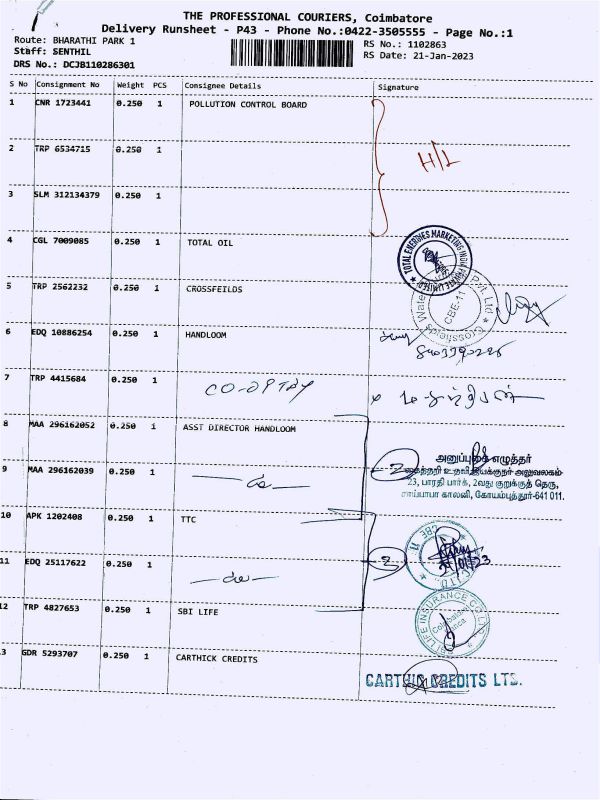 THE PROFESSIONAL COURIERS, Coimbatore
Delivery Runsheet - P43 - Phone No.:0422-3505555 - Page No.:1
Route: BHARATHI PARK 1 RS No.: 1102863
Staff: SENTHIL RS Date: 21-Jan-2023
DRS No.: DCJB110286301
S No Consignment No Weight PCS Consignee Details Signature
1 CNR 1723441 0.250 1 POLLUTION CONTROL BOARD
H/L
2 TRP 6534715 0.250 1
3 SLM 312134379 0.250 1
4 CGL 7009085 0.250 1 TOTAL OIL
TOTAL ENERGIES MARKETING INDIA PRIVATE LIMITED
5 TRP 2562232 0.250 1 CROSSFEILDS
Crossfields Water (P) Ltd
CBE-11
6 EDQ 10886254 0.250 1 HANDLOOM
7 TRP 4415684 0.250 1 CO-OPTAX
8 MAA 296162052 0.250 1 ASST DIRECTOR HANDLOOM
அனுப்புகை எழுத்தர்
கைத்தறி உதவி இயக்குநர் அலுவலகம்
9 MAA 296162039 0.250 1
23, பாரதி பார்க், 2வது குறுக்குத் தெரு,
சாய்பாபா காலனி, கோயம்புத்தூர்-641 011.
10 APK 1202408 0.250 1 TTC
CBE 11
11 EDQ 25117622 0.250 1
12 TRP 4827653 0.250 1 SBI LIFE
SBI LIFE INSURANCE CO. LTD
13 GDR 5293707 0.250 1 CARTHICK CREDITS
CARTHICK CREDITS LTS.